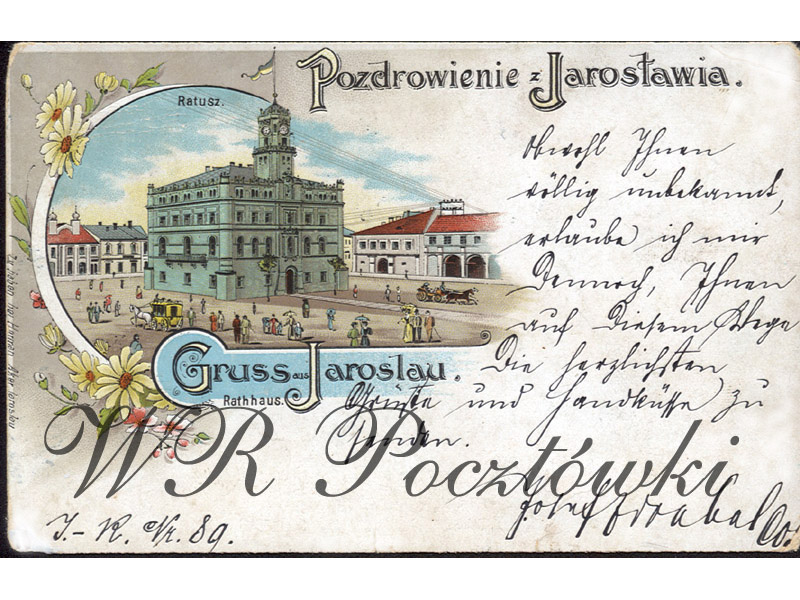 Pozdrowienie z Jarosławia.
Ratusz.
Obwohl Ihnen
völlig unbekannt,
erlaube ich mir
Dennoch, Ihnen
auf Diesem Wege
Die herzlichsten
Grüße und Handküsse zu
senden.
Gruss aus Jaroslau.
Rathhaus.
WR Pocztówki
Josef
I.-R. Nr. 89.
Jaroslau